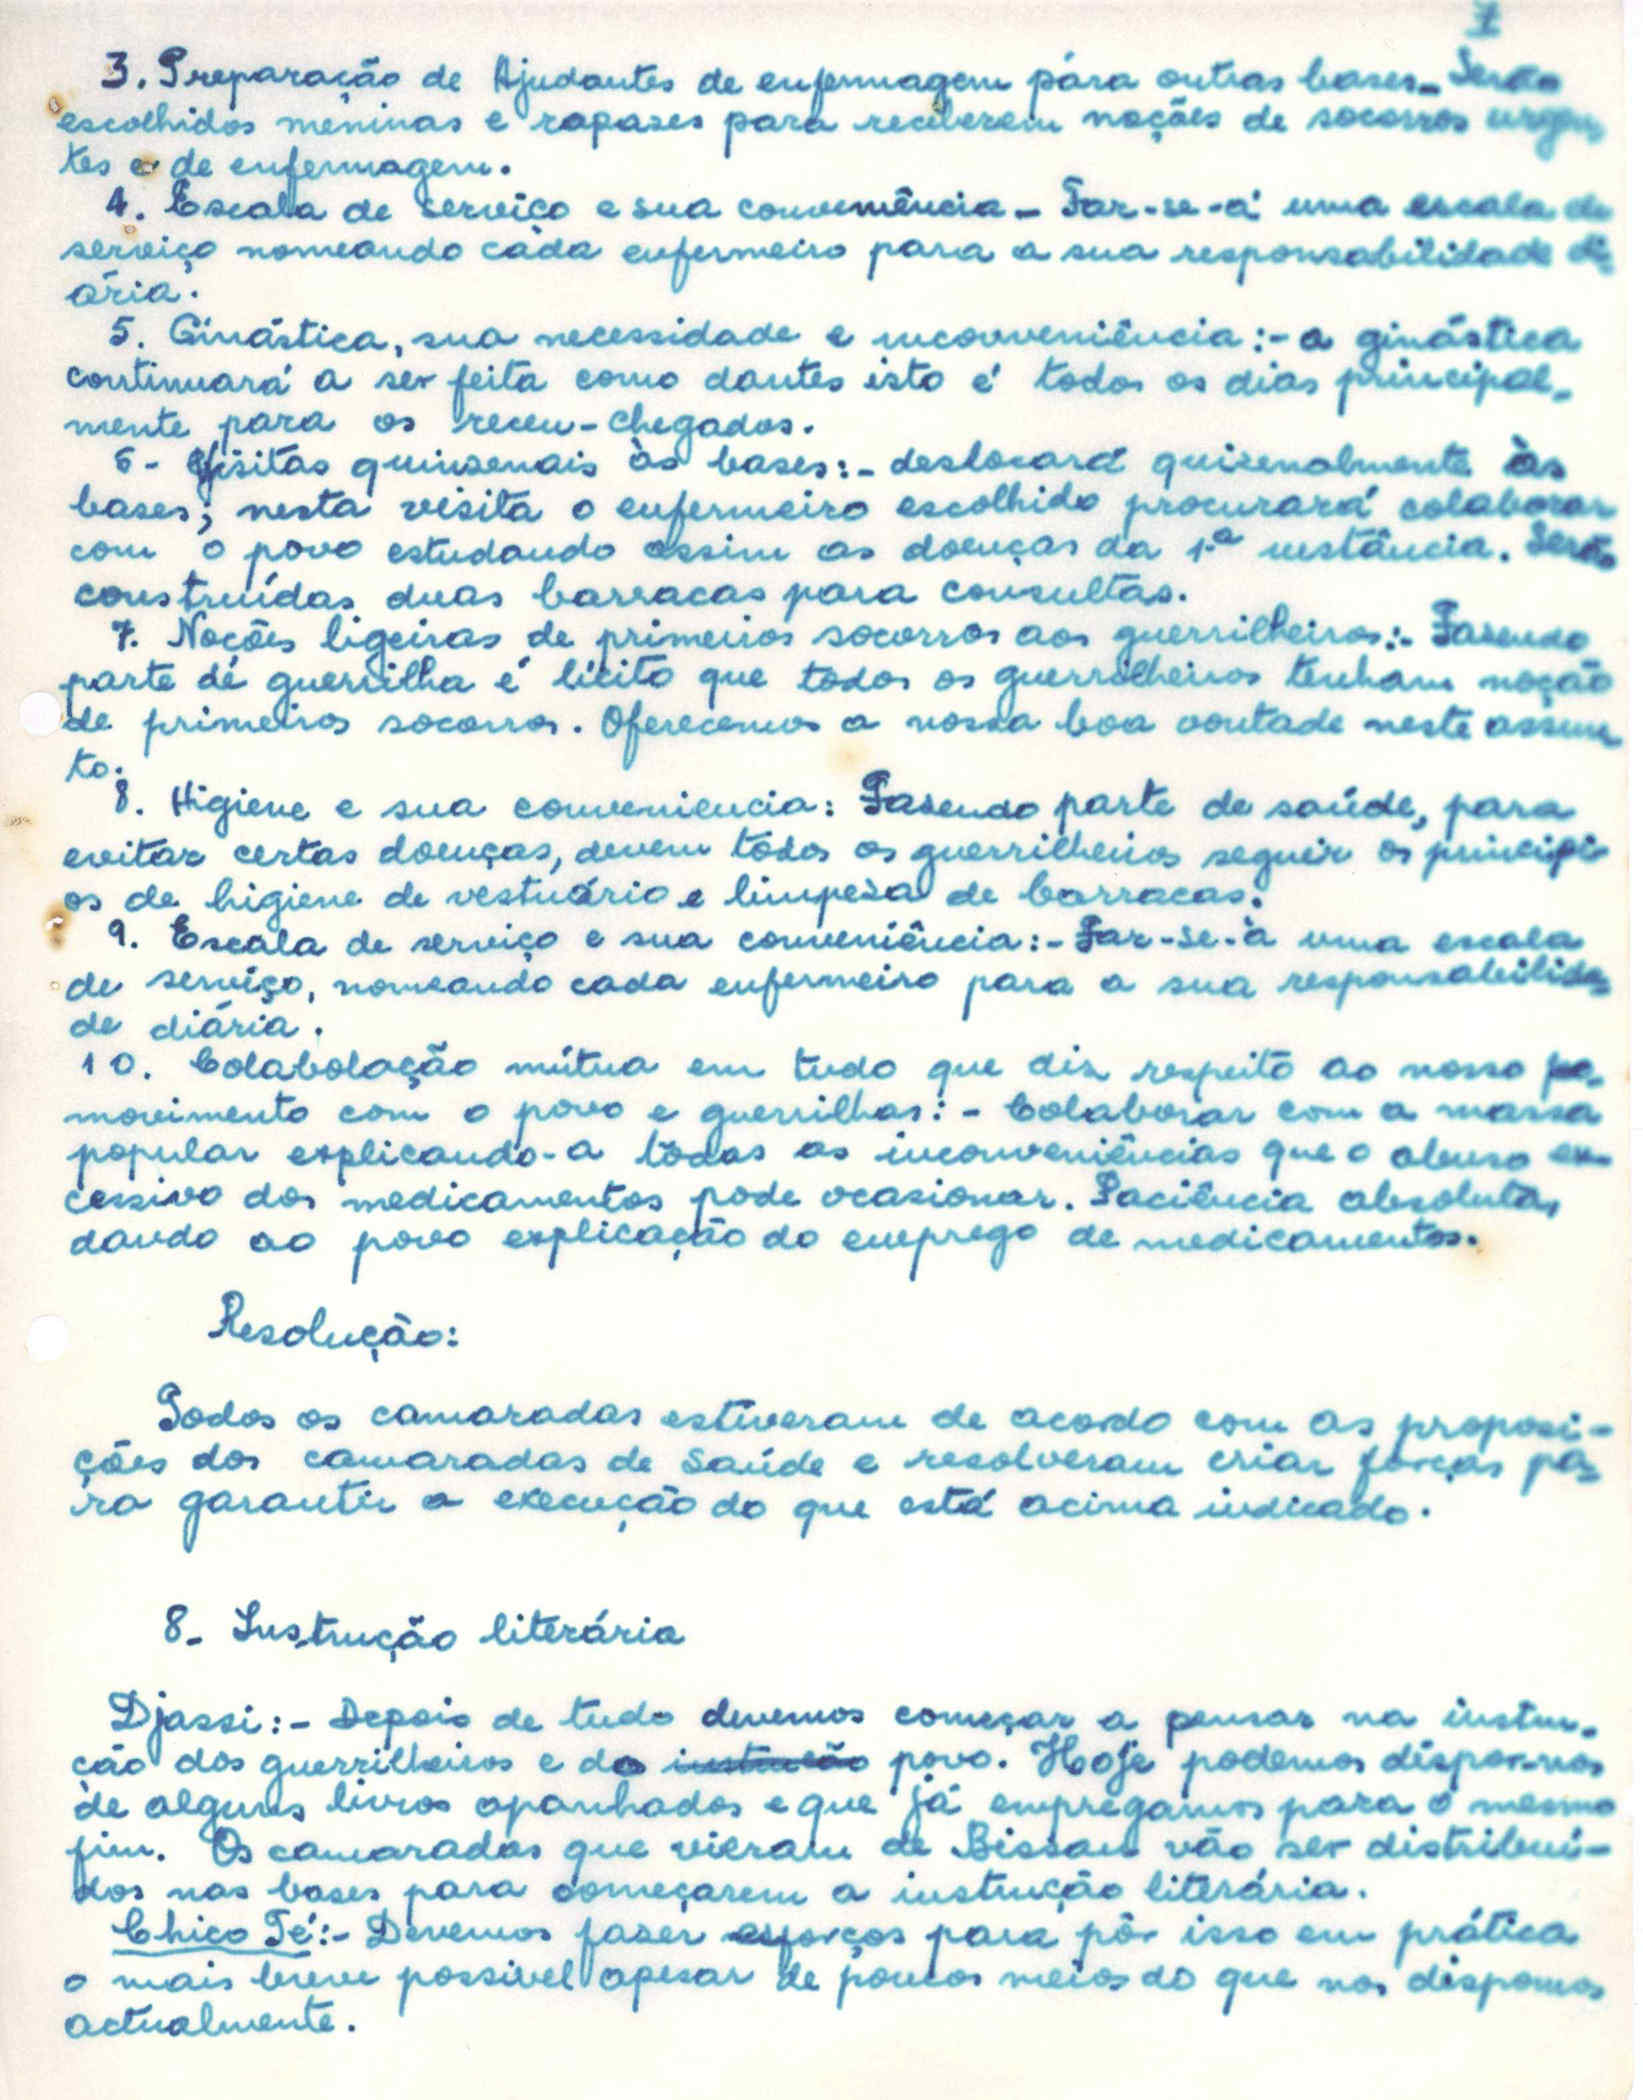 7
3. Preparação de Ajudantes de enfermagem pára outras bases - Serão
escolhidos meninas e rapases para receberem noções de socorros urgen
tes e de enfermagem.
4. Escala de serviço e sua conveniência - Far-se-á uma escala de
serviço nomeando cada enfermeiro para a sua responsabilidade di-
ária.
5. Ginástica, sua necessidade e inconveniência :- a ginástica
continuará a ser feita como dantes isto é todos os dias principal-
mente para os recem-chegados.
6- Visitas quinsenais às bases:- deslocará quisenalmente às
bases; nesta visita o enfermeiro escolhido procurará colaborar
com o povo estudando assim as doenças da 1.ª instância. Serão
construídas duas barracas para consultas.
7. Noções ligeiras de primeiros socorros aos guerrilheiros:- Fasendo
parte de guerrilha é lícito que todos os guerrilheiros tenham noção
de primeiros socorros. Oferecemos a nossa boa vontade neste assun
to.
8. Higiene e sua conveniencia: Fasendo parte de saúde, para
evitar certas doenças, devem todos os guerrilheiros seguir os principi
os de higiene de vestuário e limpesa de barracas.
9. Escala de serviço e sua conveniência:- Far-se-à uma escala
de serviço, nomeando cada enfermeiro para a sua responsabilida-
de diária.
10. Colabolação mútua em tudo que diz respeito ao nosso po-
movimento com o povo e guerrilhas:- Colaborar com a massa
popular explicando-a todas as inconveniências que o abuso ex-
cessivo dos medicamentos pode ocasionar. Paciência absoluta,
dando ao povo explicação do emprego de medicamentos.
Resolução:
Todos os camaradas estiveram de acordo com as proposi-
ções dos camaradas de Saúde e resolveram criar forças pa-
ra garantir a execução do que está acima indicado.
8- Instrução literária
Djassi:- Depois de tudo devemos começar a pensar na instru-
ção dos guerrilheiros e do instrução povo. Hoje podemos dispor-nos
de alguns livros apanhados e que já empregamos para o mesmo
fim. Os camaradas que vieram de Bissau vão ser distribuí-
dos nas bases para começarem a instrução literária.
Chico Té:- Devemos faser esforços para pôr isso em prática
o mais breve possivel apesar de poucos meios do que nos dispomos
actualmente.